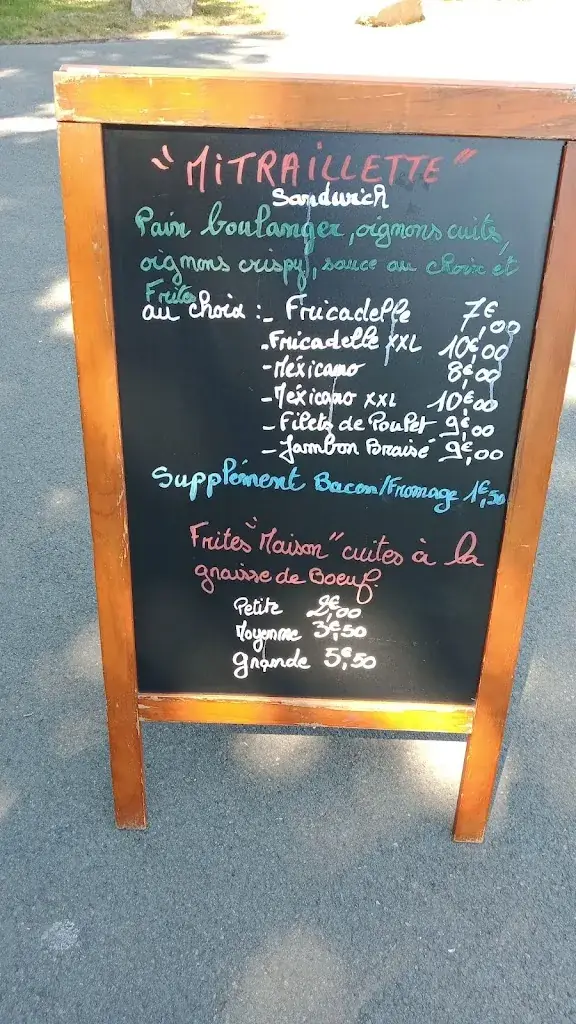 "MITRAILLETTE"
Sandwich
Pain boulanger, oignons cuits,
oignons crispy, sauce au choix et
Frites
au choix : - Fricadelle 7€,00
- Fricadelle XXL 10€,00
- Méxicano 8€,00
- Méxicano XXL 10€,00
- Filets de Poulet 9€,00
- Jambon Braisé 9€,00
Supplément Bacon/Fromage 1€,50
Frites "Maison" cuites à la
graisse de Boeuf.
Petite 2€,00
Moyenne 3€,50
grande 5€,50